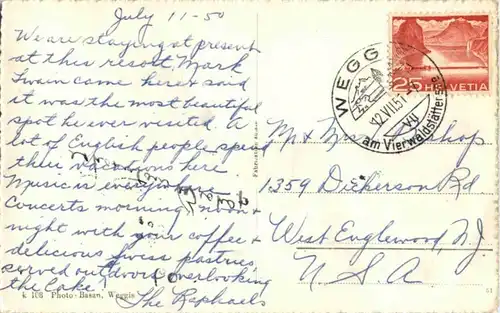 July 11-50
We are staying at present
at this resort. Mark
Twain came here & said
it was the most beautiful
spot he ever visited. A
lot of English people spend
their vacations here
Music is everywhere
Concerts morning, noon &
night with your coffee &
delicious Swiss pastries
served outdoors overlooking
the lake.
The Raphaels
k 108 Photo-Basan, Weggis
25 HELVETIA
WEGGIS
12.VII.51
am Vierwaldstättersee
Mr & Mrs.
1359 Dickerson Rd
West Englewood, N.J.
U.S.A
51